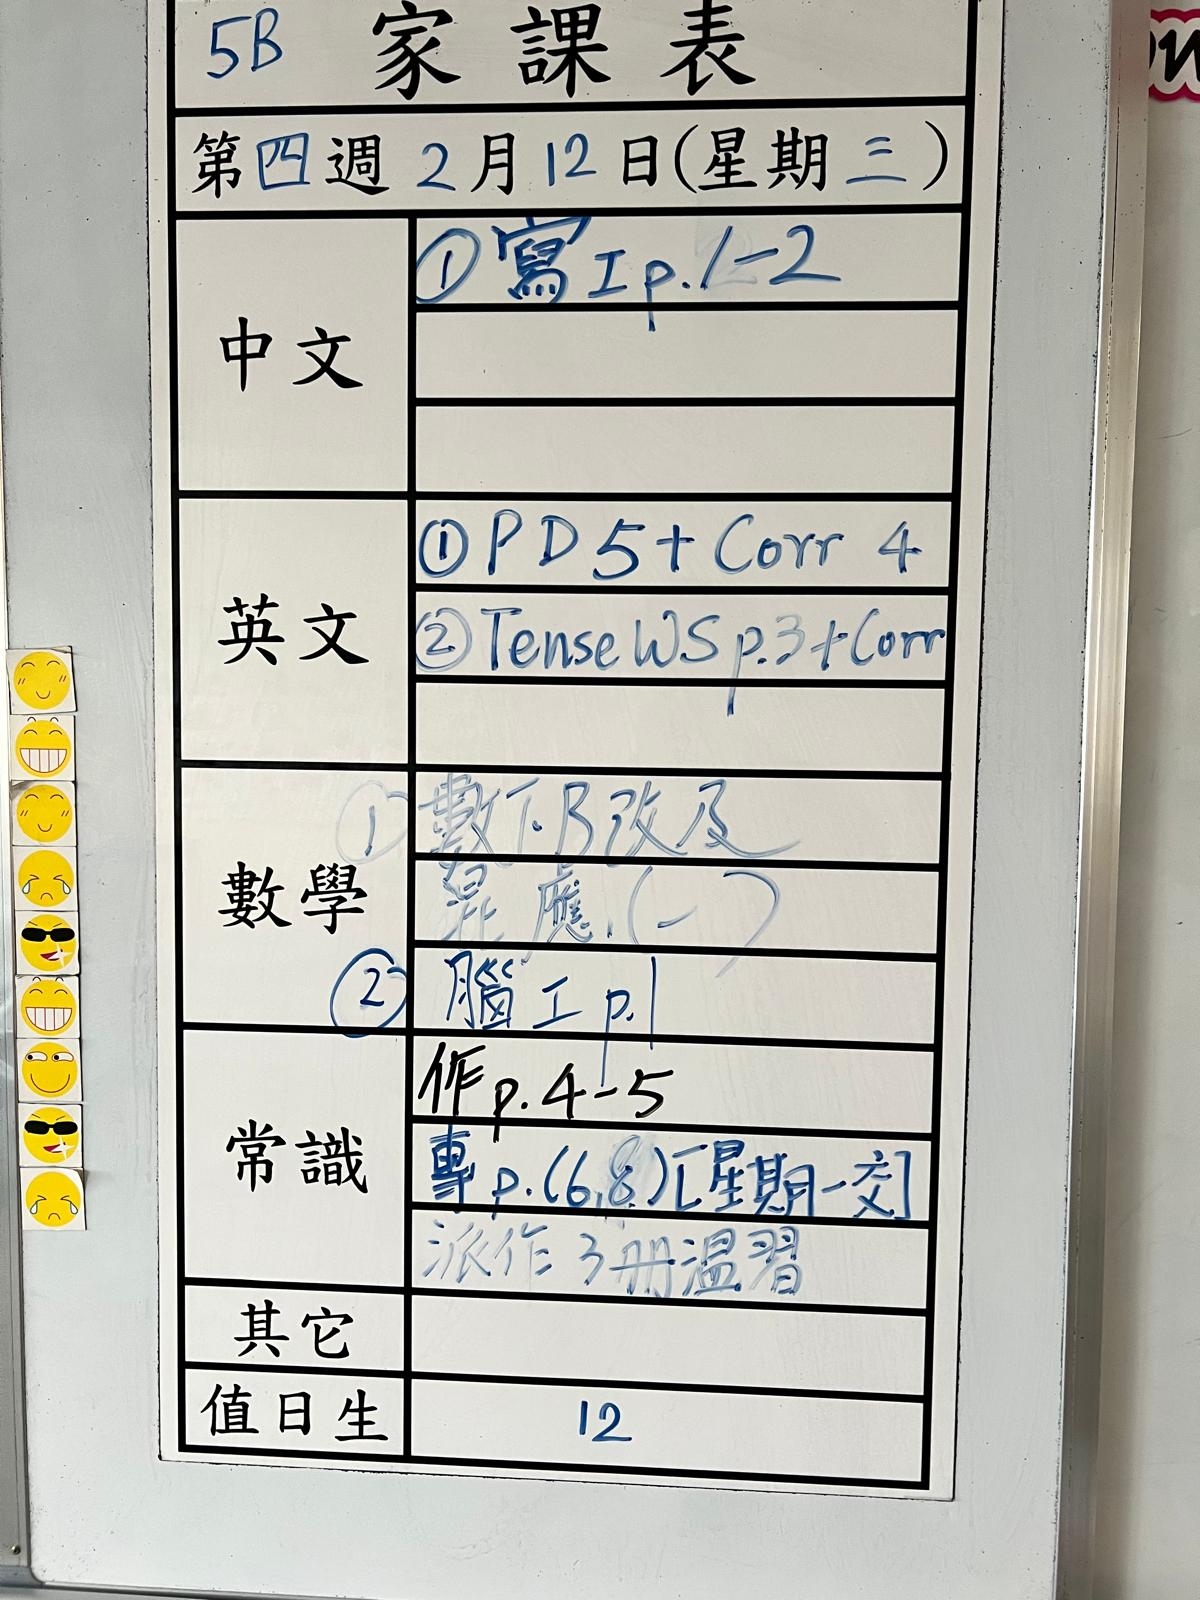 5B 家課表
第四週 2月12日(星期三)
中文
① 寫工 p.1-2
英文
① PD5 + Corr 4
② Tense WS p.3 + Corr
數學
① 數下B改及
應.(一)
② 腦工 p.1
常識
作 p.4-5
專 p.(6,8)[星期一交]
派作3冊溫習
其它
值日生
12